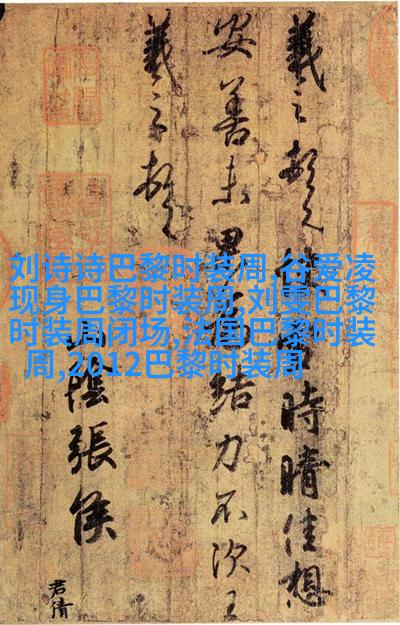 刘诗诗巴黎时装周,谷爱凌
现身巴黎时装周,刘雯巴黎
时装周闭场,法国巴黎时装
周,2012巴黎时装周
羲之頓首時晴佳想
安善未果為結力不次王
羲之頓首
陰張侯
君倩